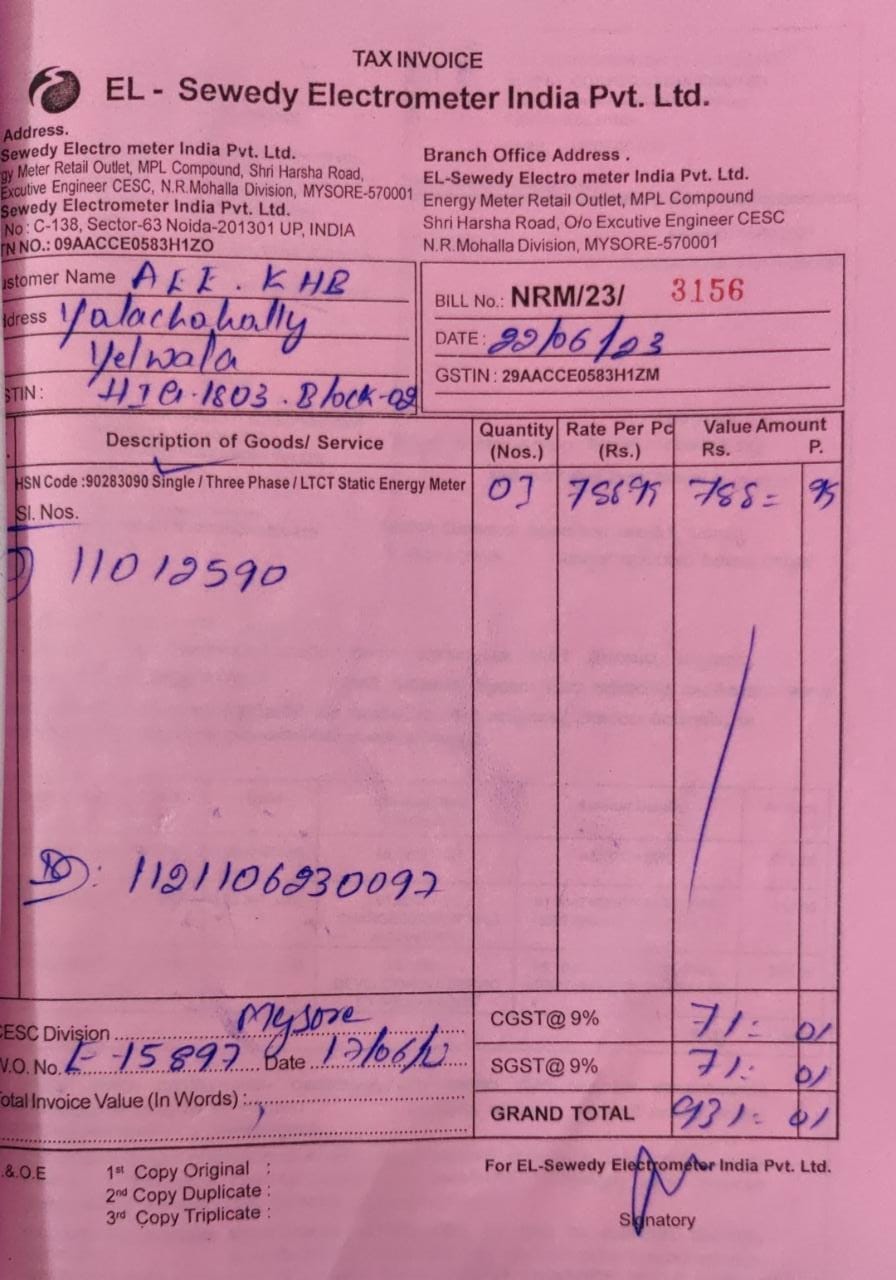 TAX INVOICE
EL - Sewedy Electrometer India Pvt. Ltd.
Address.
Sewedy Electro meter India Pvt. Ltd.
gy Meter Retail Outlet, MPL Compound, Shri Harsha Road,
Excutive Engineer CESC, N.R.Mohalla Division, MYSORE-570001
Sewedy Electrometer India Pvt. Ltd.
No : C-138, Sector-63 Noida-201301 UP, INDIA
TN NO.: 09AACCE0583H1ZO
Branch Office Address .
EL-Sewedy Electro meter India Pvt. Ltd.
Energy Meter Retail Outlet, MPL Compound
Shri Harsha Road, O/o Excutive Engineer CESC
N.R.Mohalla Division, MYSORE-570001
ustomer Name AEE . KHB
dress Yalachahally
Yelwala
STIN : HIG-1803 . Block-02
BILL No.: NRM/23/ 3156
DATE : 22/06/23
GSTIN : 29AACCE0583H1ZM
Description of Goods/ Service
Quantity (Nos.)
Rate Per Pc (Rs.)
Value Amount
Rs. P.
HSN Code :90283090 Single / Three Phase / LTCT Static Energy Meter 01 788=95
Sl. Nos.
11012590
1121106230097
CESC Division Mysore
W.O. No. E-15897 Date 17/06/
otal Invoice Value (In Words) :
CGST@ 9% 71= 01
SGST@ 9% 71= 01
GRAND TOTAL 931= 01
.&.O.E
1st Copy Original :
2nd Copy Duplicate :
3rd Copy Triplicate :
For EL-Sewedy Electrometer India Pvt. Ltd.
Signatory